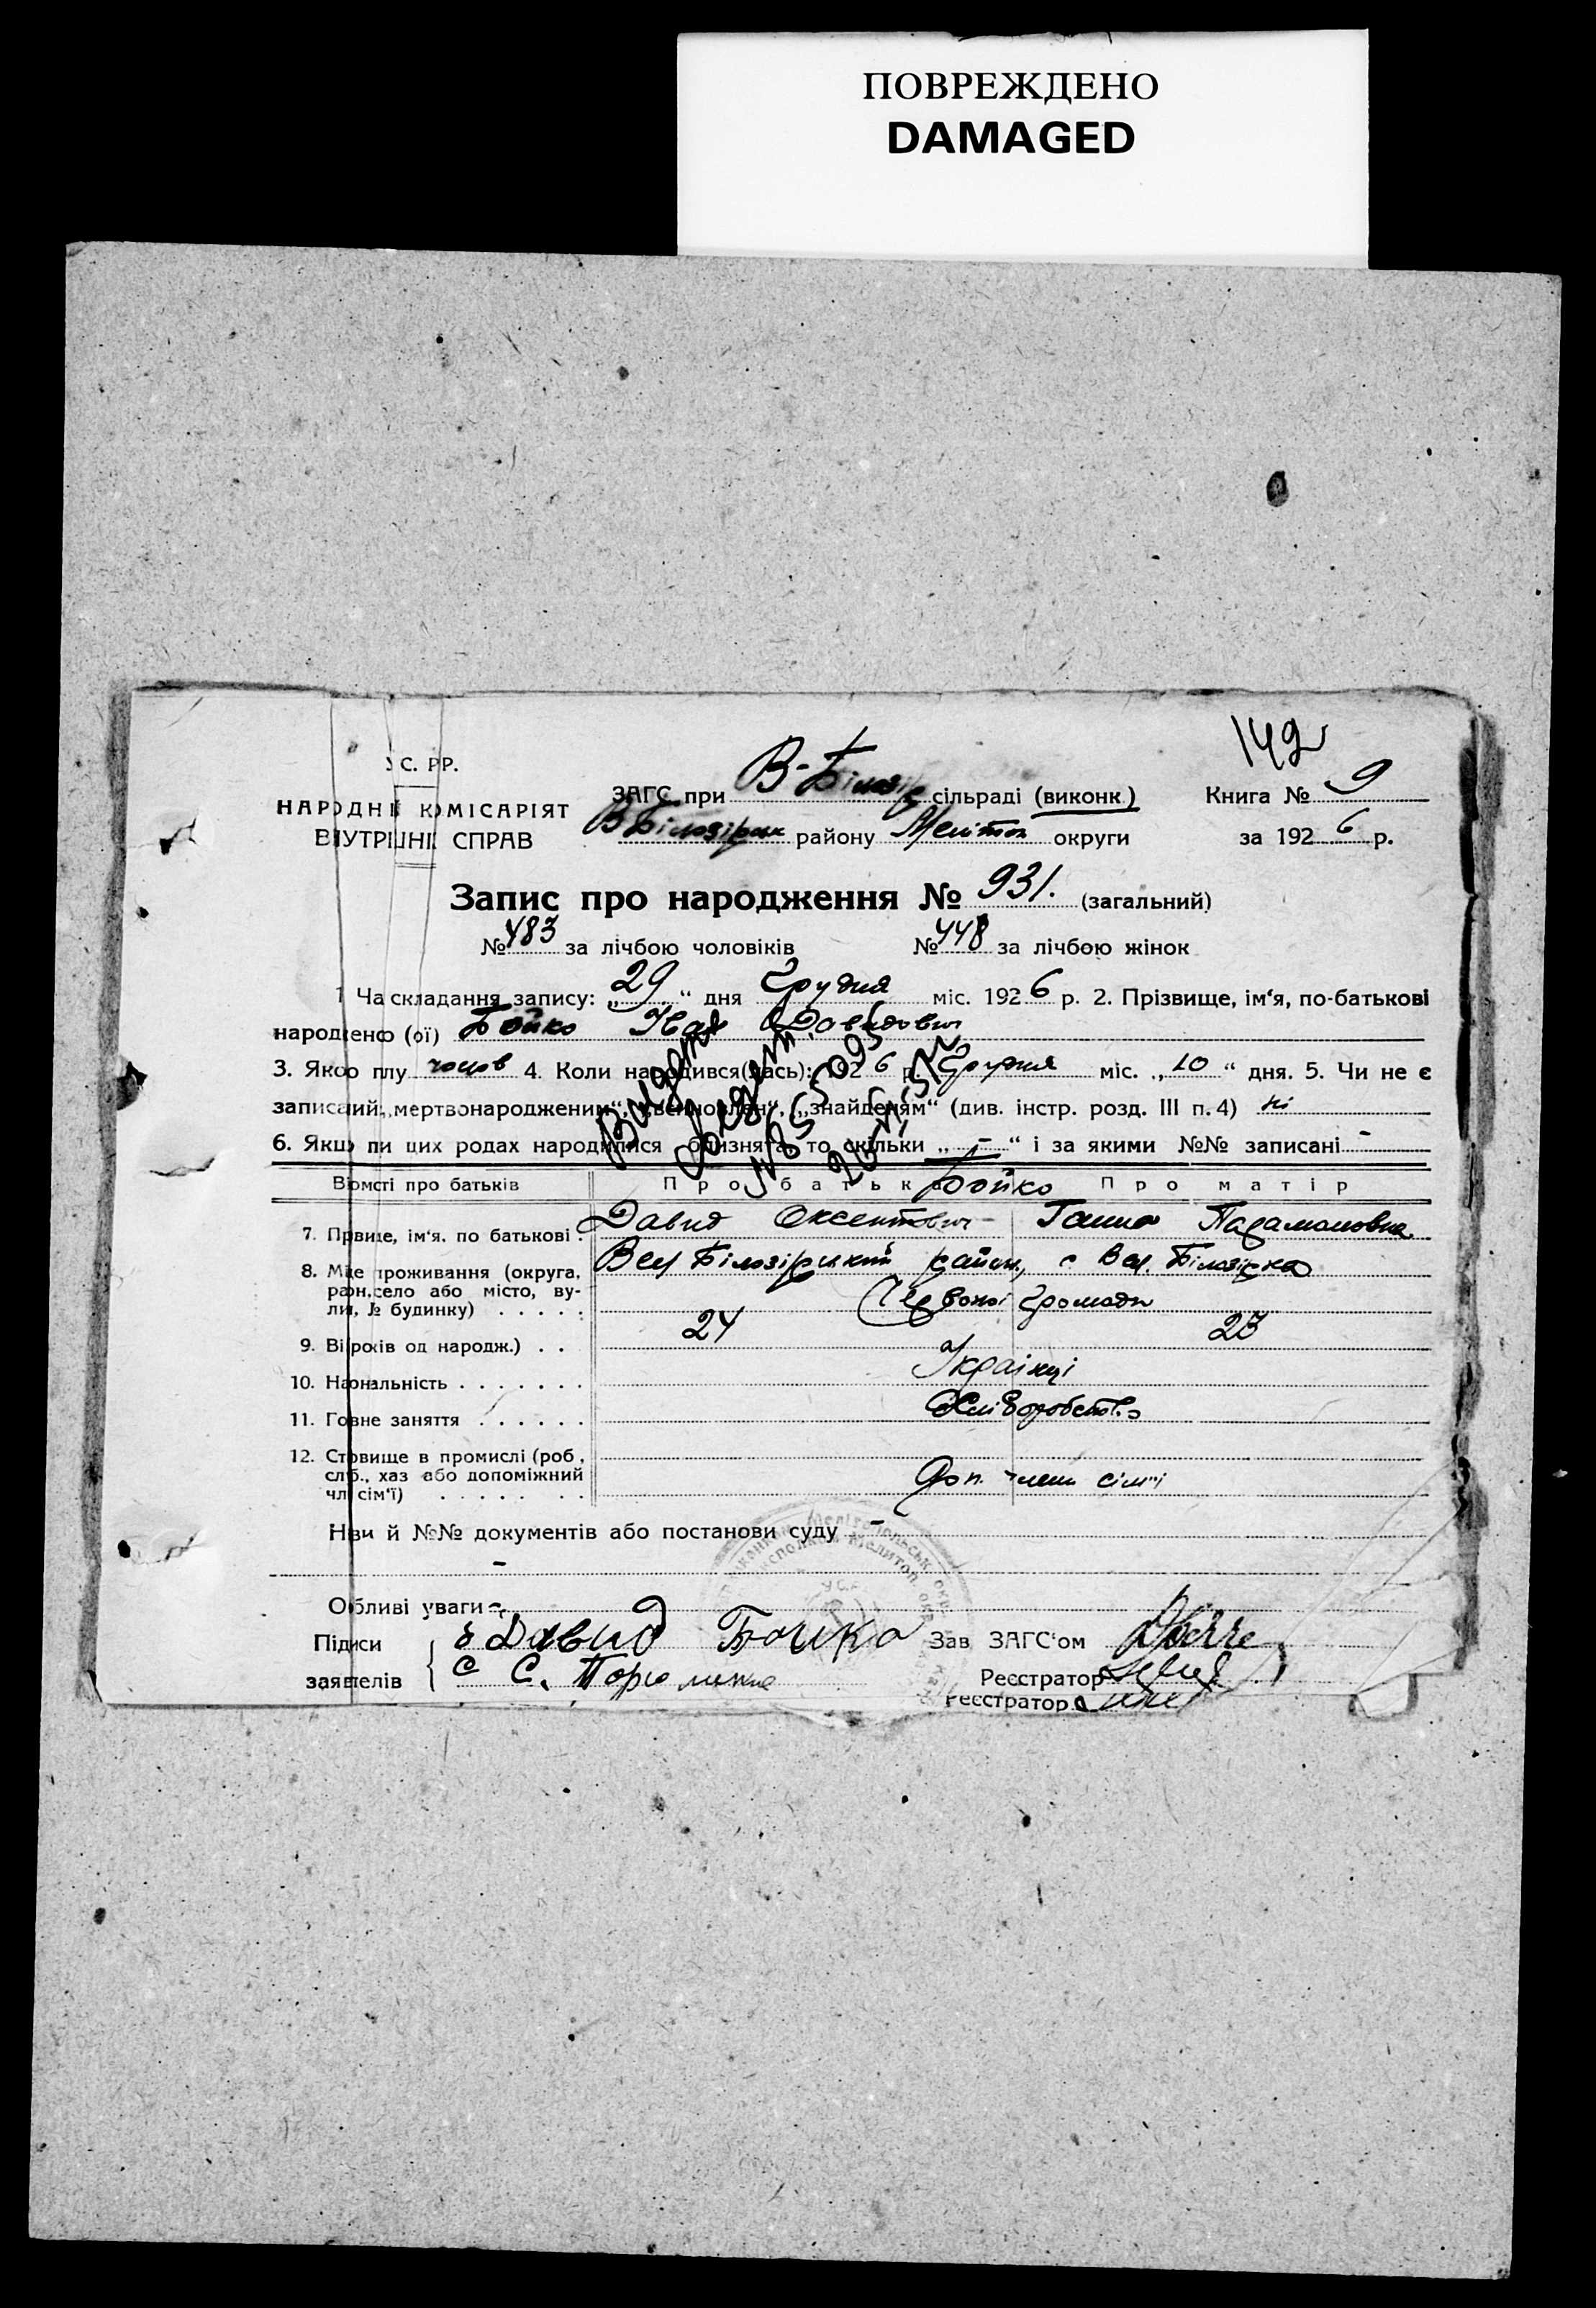 ПОВРЕЖДЕНО
DAMAGED
149
У.С. РР.
НАРОДНІЙ КОМІСАРІЯТ
ВНУТРІШНІХ СПРАВ
ЗАГС при В-Білозір сільраді (виконк.)
Книга № 9
В Білозірськ району Меліտոп округи
за 1926 р.
Запис про народження № 931. (загальний)
№ 483 за лічбою чоловіків № 448 за лічбою жінок
1 Час складання запису: „29“ дня Грудня міс. 1926 р. 2. Прізвище, ім‘я, по-батькові
народженого (ої) Бойко Іван Давидович
3. Якого полу чолов 4. Коли народився(лась): 1926 р. Грудня міс. „10“ дня. 5. Чи не є
записаний „мертвонародженим“, „знайденям“ (див. інстр. розд. III п. 4) ні
6. Якщо при цих родах народилися близнята, то скільки „-“ і за якими №№ записані -
Видано
№
Відомості про батьків Про батька Про матір
Бойко
7. Прізвище, ім‘я, по батькові Давид Оксентович Ганна Парамоновна
8. Місце проживання (округа, район, село або місто, вулиця, № будинку) Вел Білозірський район, с Вел. Білозірка
Червоної Громади
9. Вік (років од народж.) 24 23
10. Національність Українці
11. Головне заняття Хліборобство
12. Становище в промислі (роб., служб., хаз або допоміжний член сім‘ї) Доп. члени сім'ї
Назви й №№ документів або постанови суду -
-
Особливі уваги -
Підписи Давид Бойко Зав ЗАГС‘ом
заявителів С. Реєстратор
Реєстратор